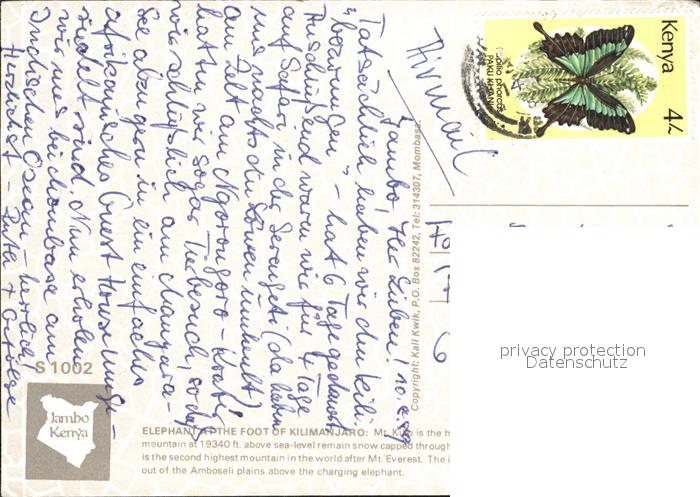 Jambo! Ihr Lieben! 10.2.89
Tatsächlich haben wir den Kili
"bezwungen" – hat 6 Tage gedauert
Anschließend waren wir für 4 Tage
auf Safari in der Serengeti (da haben
uns nachts die Löwen umheult)
am Zelt am Ngorongoro-Krater
hatten wir sogar Tierbesuch, so daß
wir schließlich am Manyara-
See abzogen in ein einfaches
afrikanisches Guest House umge-
siedelt sind. Nun erholen
wir uns bei Mombasa am
Indischen Ozean – herrlich!
Herzlichst –
Airmail
Kenya 4/-
papilio phorcas
Copyright: Kall Kwik, P.O. Box 82242, Tel: 314307, Mombasa.
S 1002
Jambo
Kenya
ELEPHANT AT THE FOOT OF KILIMANJARO: Mt. is the h
mountain at 19340 ft. above sea-level remain snow capped through
is the second highest mountain in the world after Mt. Everest. The
out of the Amboseli plains above the charging elephant.
privacy protection
Datenschutz